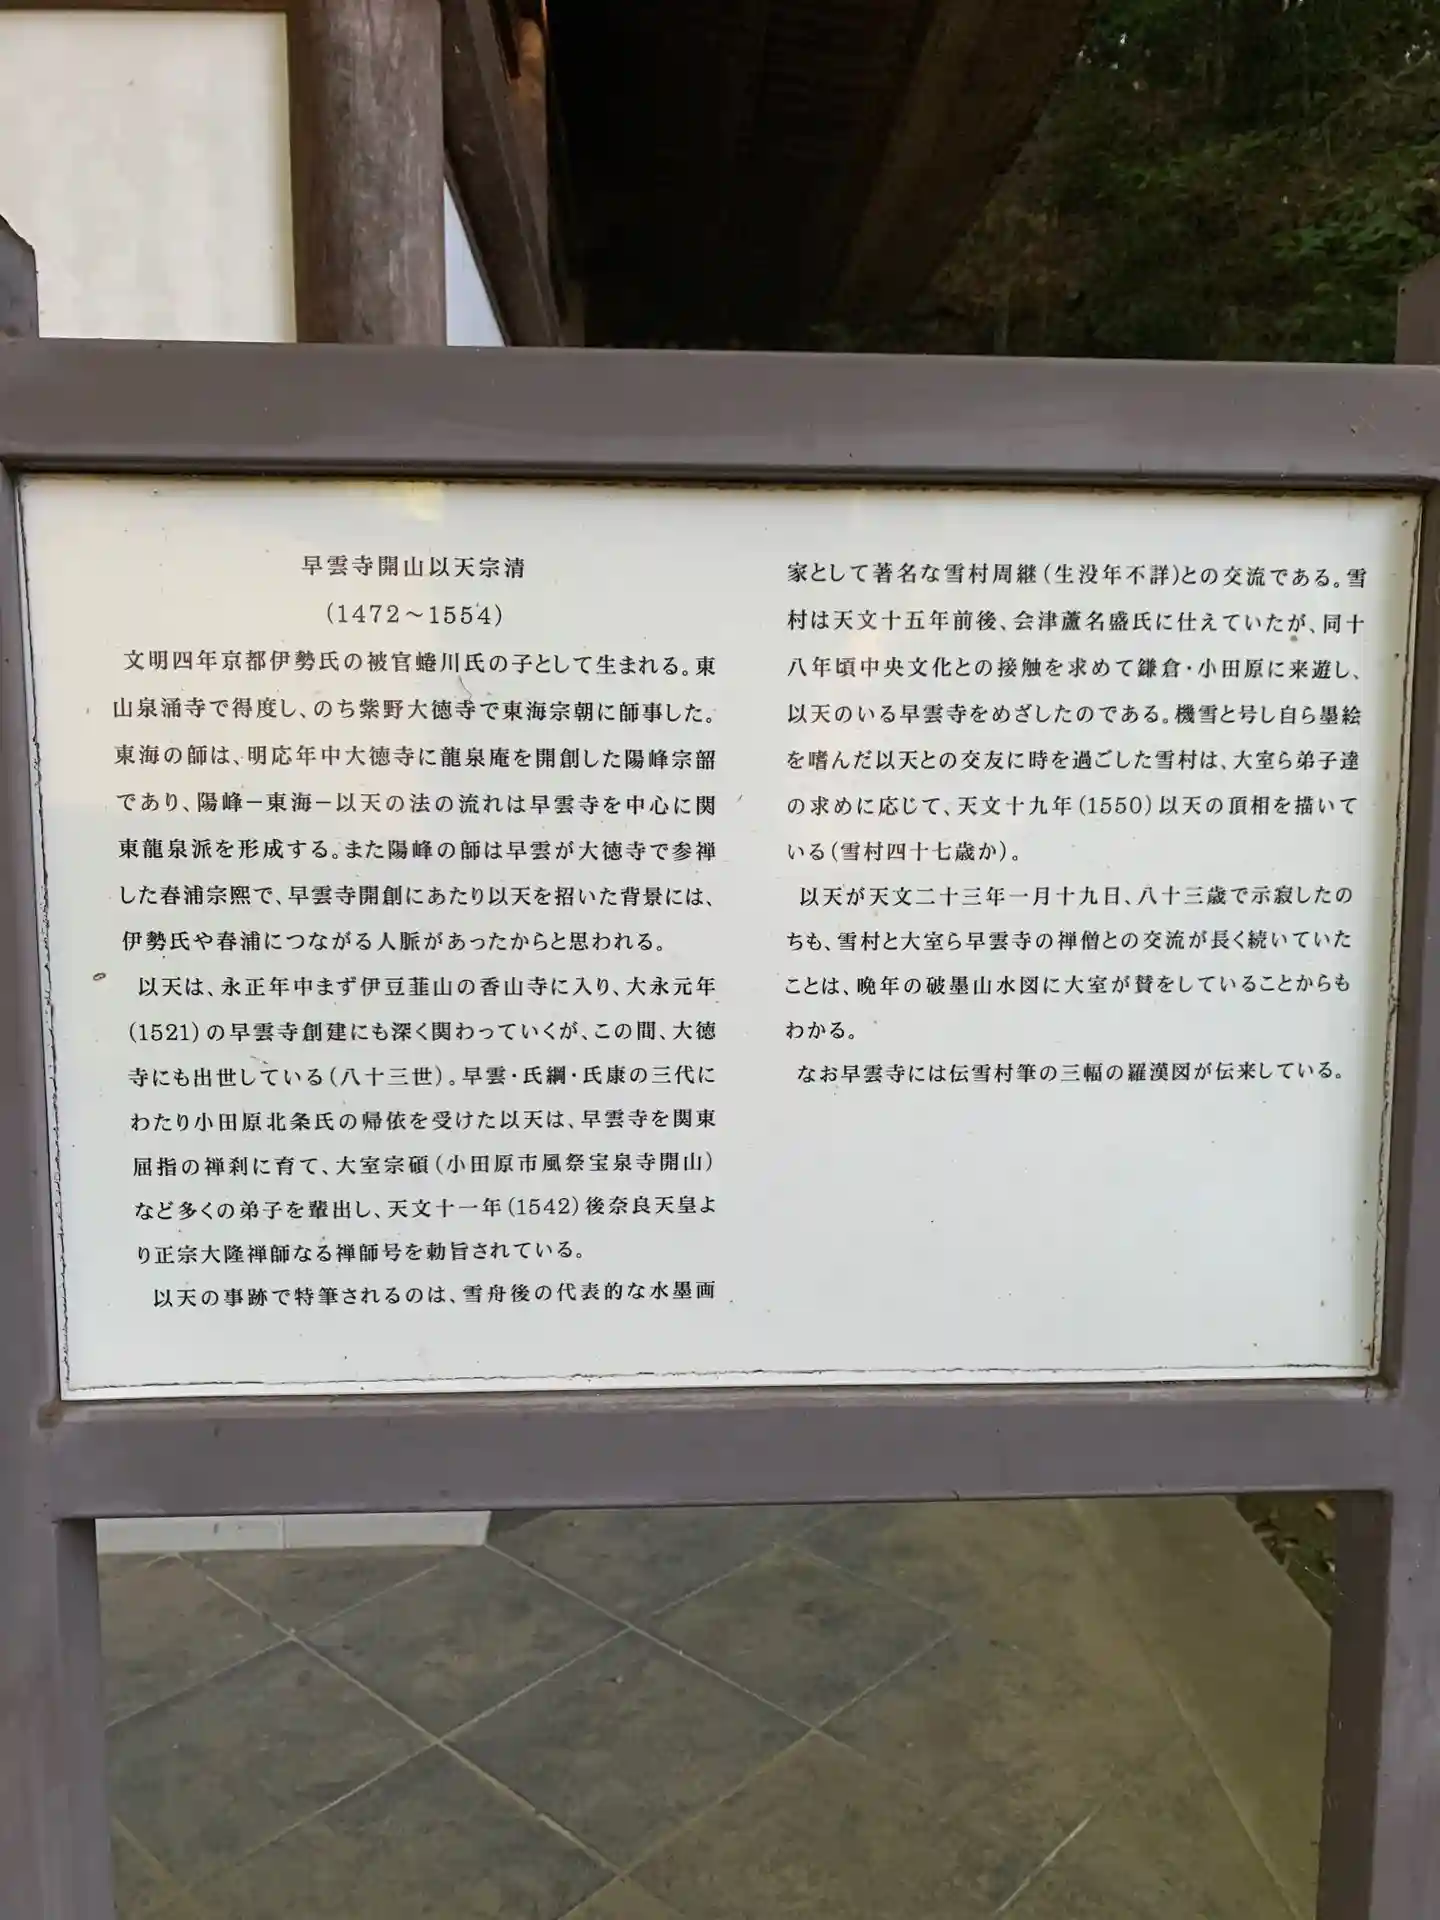 早雲寺開山以天宗清
(1472～1554)
文明四年京都伊勢氏の被官蜷川氏の子として生まれる。東
山泉涌寺で得度し、のち紫野大徳寺で東海宗朝に師事した。
東海の師は、明応年中大徳寺に龍泉庵を開創した陽峰宗韶
であり、陽峰−東海−以天の法の流れは早雲寺を中心に関
東龍泉派を形成する。また陽峰の師は早雲が大徳寺で参禅
した春浦宗熙で、早雲寺開創にあたり以天を招いた背景には、
伊勢氏や春浦につながる人脈があったからと思われる。
以天は、永正年中まず伊豆韮山の香山寺に入り、大永元年
(1521)の早雲寺創建にも深く関わっていくが、この間、大徳
寺にも出世している(八十三世)。早雲・氏綱・氏康の三代に
わたり小田原北条氏の帰依を受けた以天は、早雲寺を関東
屈指の禅刹に育て、大室宗碩(小田原市風祭宝泉寺開山)
など多くの弟子を輩出し、天文十一年(1542)後奈良天皇よ
り正宗大隆禅師なる禅師号を勅旨されている。
以天の事跡で特筆されるのは、雪舟後の代表的な水墨画
家として著名な雪村周継(生没年不詳)との交流である。雪
村は天文十五年前後、会津蘆名盛氏に仕えていたが、同十
八年頃中央文化との接触を求めて鎌倉・小田原に来遊し、
以天のいる早雲寺をめざしたのである。機雪と号し自ら墨絵
を嗜んだ以天との交友に時を過ごした雪村は、大室ら弟子達
の求めに応じて、天文十九年(1550)以天の頂相を描いて
いる(雪村四十七歳か)。
以天が天文二十三年一月十九日、八十三歳で示寂したの
ちも、雪村と大室ら早雲寺の禅僧との交流が長く続いていた
ことは、晩年の破墨山水図に大室が賛をしていることからも
わかる。
なお早雲寺には伝雪村筆の三幅の羅漢図が伝来している。